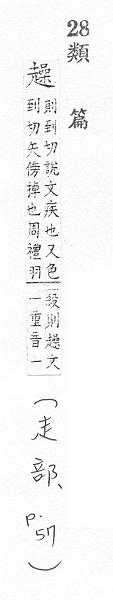 28 類篇
趮
則到切說文疾也又色
到切矢傍掉也周禮羽
殺則趮文
一重音一
(走部、p.57)